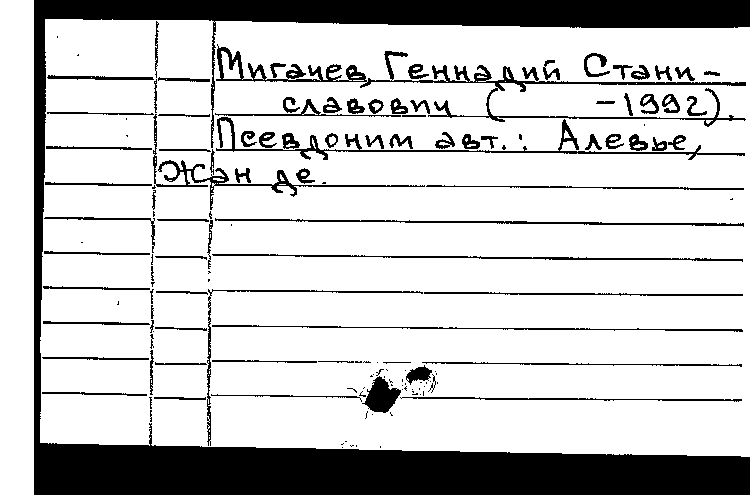 Мигачев, Геннадий Стани-
славович (      -1992).
Псевдоним авт.: Алевье,
Жан де.